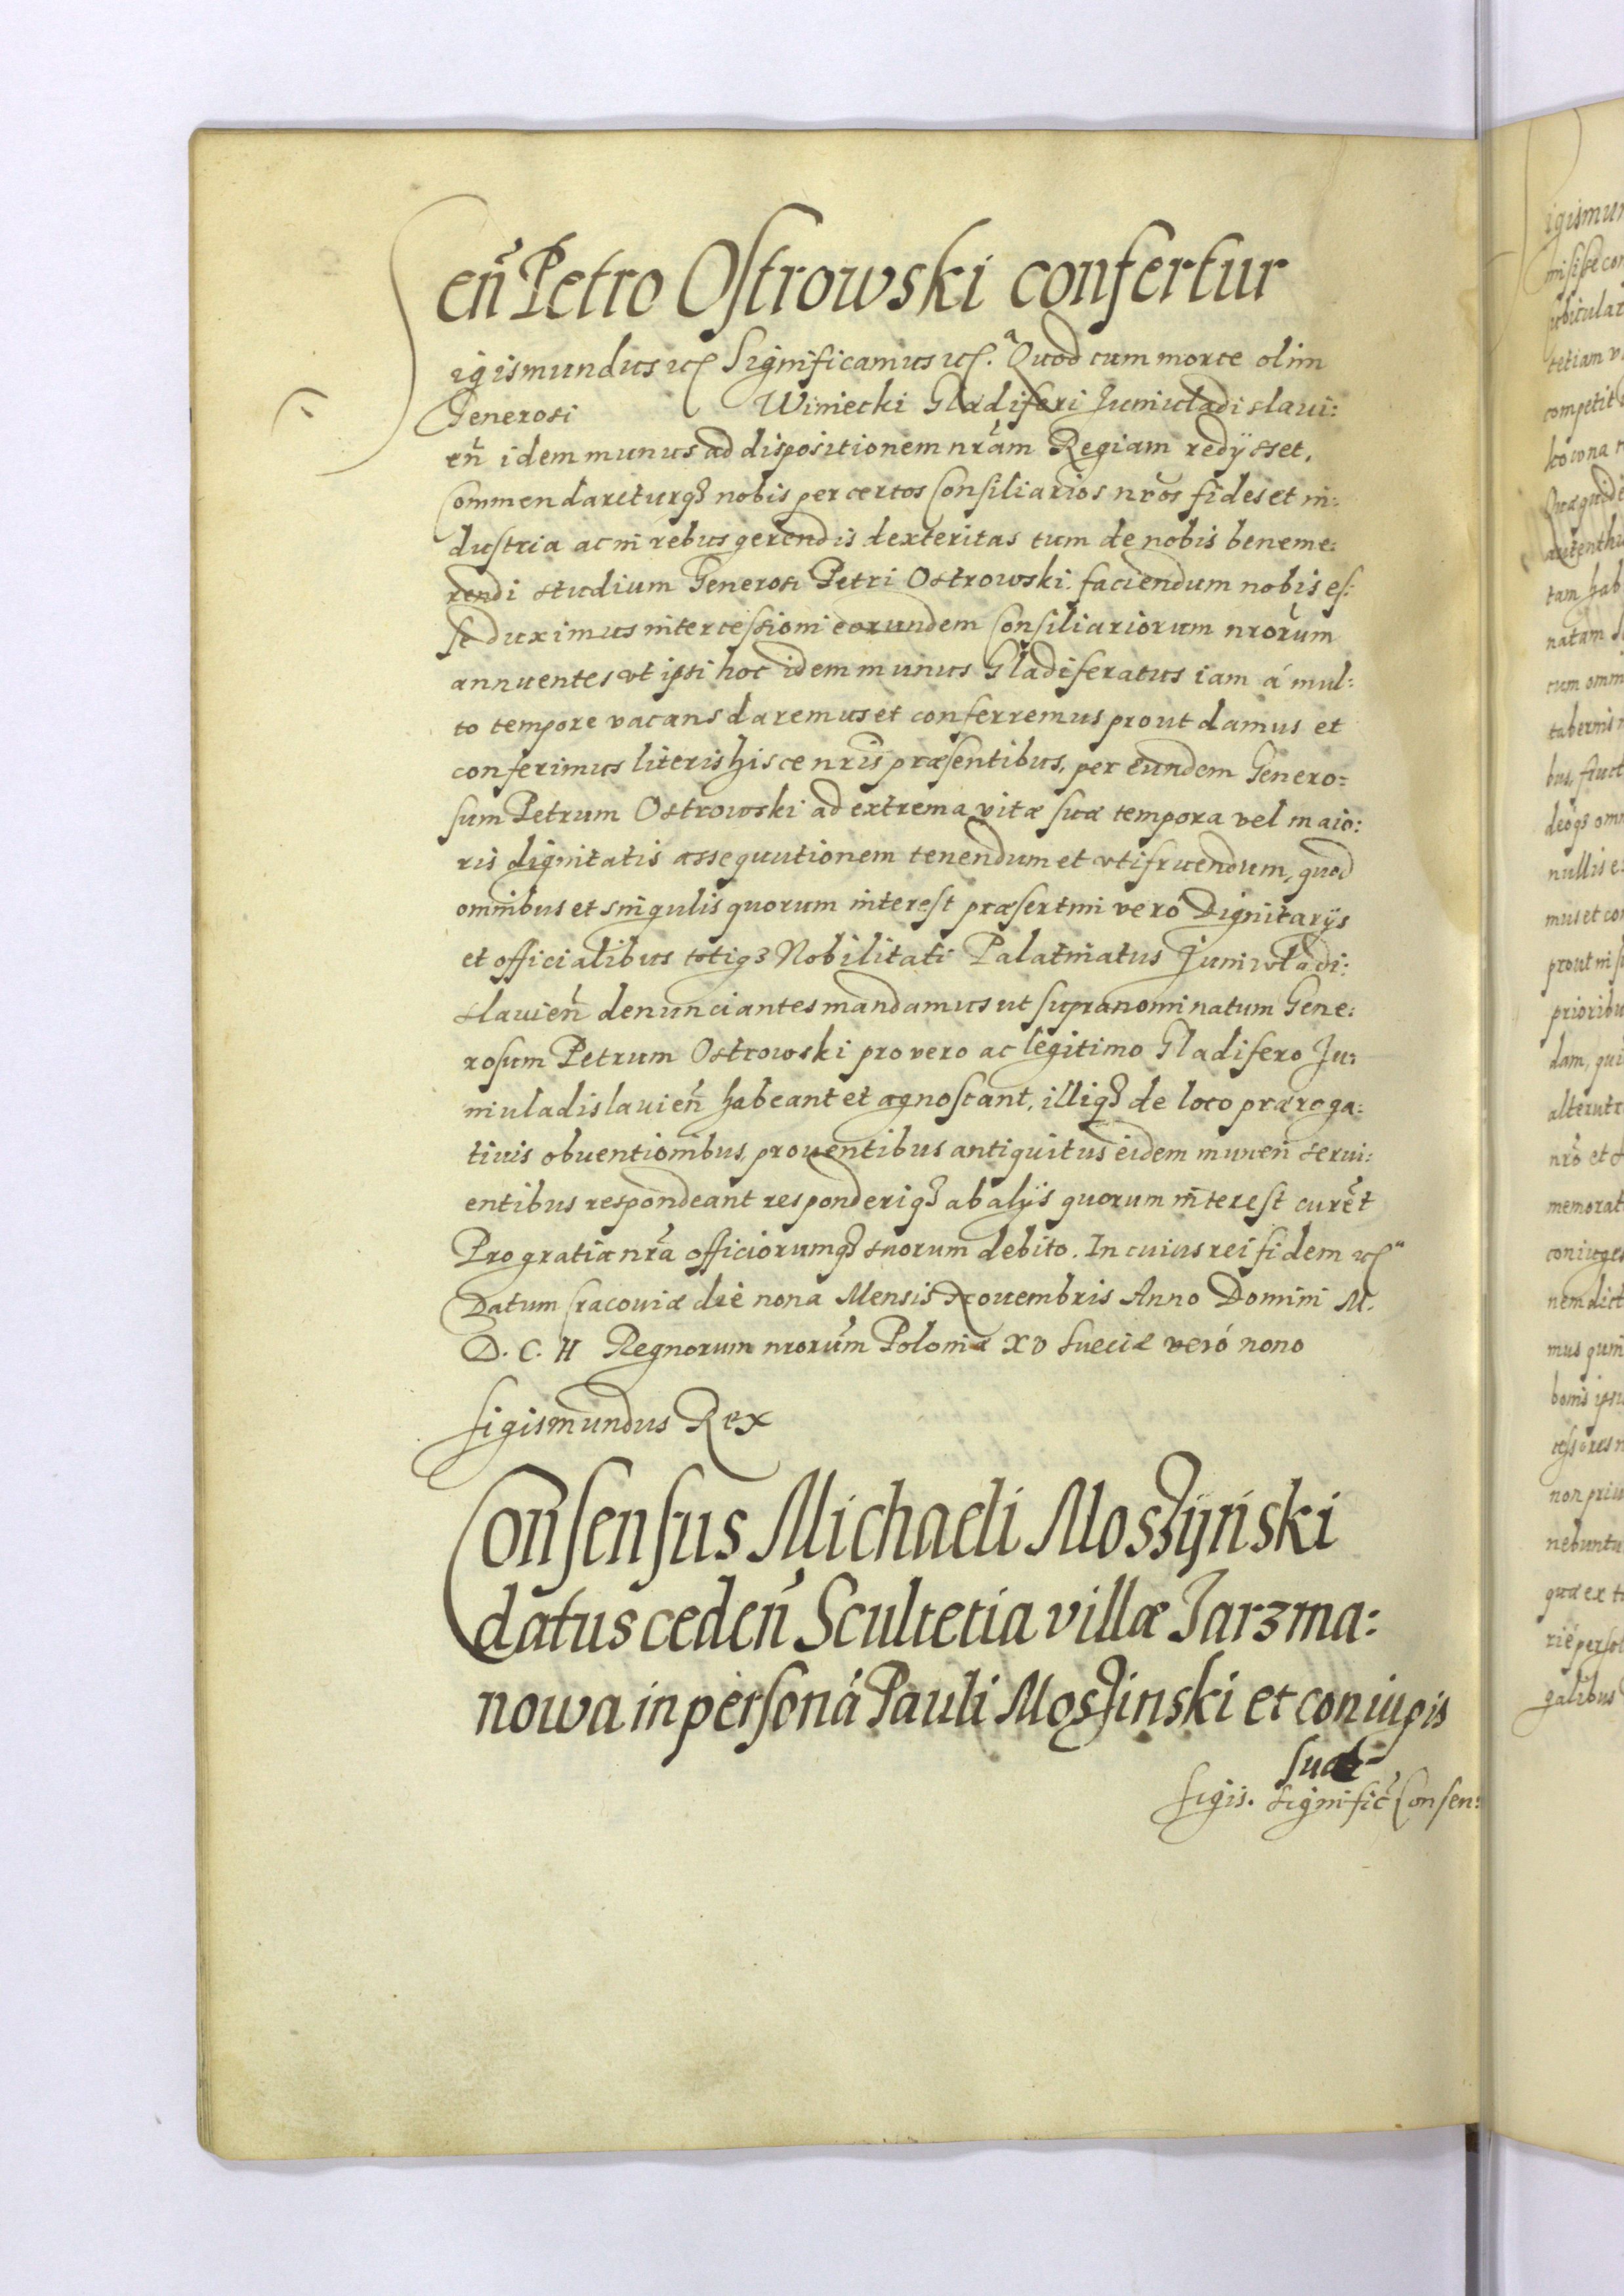 en̄ Petro Ostrowski confertur
Sigismundus etc Significamus etc. Quod cum morte olim
Generosi Winiecki Gladiferi Juniwladislaui:
en̄ idem munus ad dispositionem nram Regiam redÿsset,
Commendareturq3 nobis per certos Consiliarios nros fides et in:
dustria ac in rebus gerendis dexteritas tum de nobis beneme:
rendi studium Generosi Petri Ostrowski. faciendum nobis es:
se duximus intercessioni eorundem Consiliariorum nrorum
annuentes vt ipsi hoc idem munus Gladiferatus iam á mul:
to tempore vacans daremus et conferremus prout damus et
conferimus literis hisce nris præsentibus, per eundem Genero=
sum Petrum Ostrowski ad extrema vitæ suæ tempora vel maio:
ris dignitatis assequutionem tenendum et vtifruendum, quod
omnibus et singulis quorum interest præsertim vero Dignitarÿs
et officialibus totiq3 Nobilitati Palatinatus Juniwladi:
slauien̄ denunciantes mandamus ut supranominatum Gene:
rosum Petrum Ostrowski pro vero ac legitimo Gladifero Ju:
niuladislauien̄ habeant et agnoscant, illiq3 de loco præroga:
tiuis obuentionibus, prouentibus antiquitus eidem muneri serui:
entibus respondeant responderiq3 ab alÿs quorum interest curēt
Pro gratia nra officiorumq3 suorum debito. In cuius rei fidem etc
Datum Cracouiæ die nona Mensis Nouembris Anno Domini M.
D. C. II Regnorum nrorum Poloniæ XV Sueciæ veró nono
Sigismundus Rex
Consensus Michaeli Moszÿński
datus ceden̄ Scultetia villæ Jarzma:
nowa in personá Pauli Moszinski et coniugis
suæ
Sigis. Significˉ Consen: